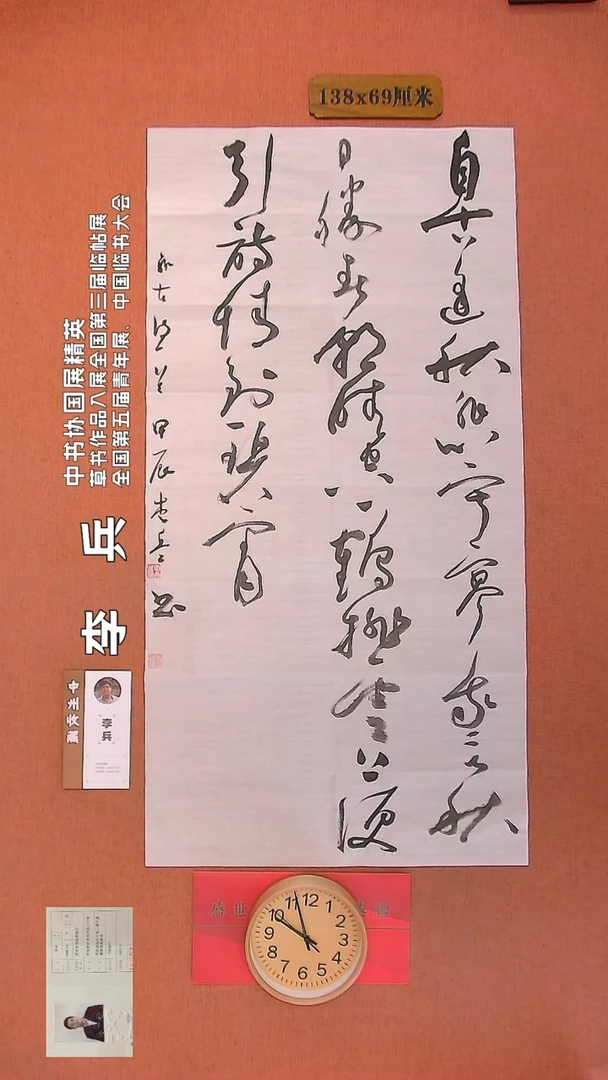 138x69厘米
自古逢秋悲寂寥我言秋
日勝春朝晴空一鶴排雲上便
引詩情到碧霄
甲辰李兵書
中书协国展精英
草书作品入展全国第三届临帖展
全国第五届青年展、中国临书大会
李 兵
盛世
12 1 2 3 4 5 6 7 8 9 10 11